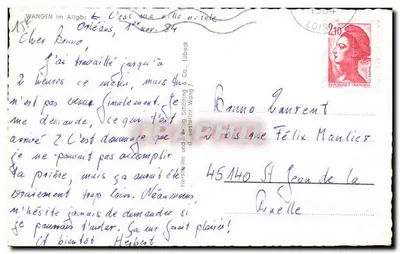 WANGEN im Allgäu
C'est ma ville natale
Orléans, 1er nov. 84
Cher Bruno,
J'ai travaillé jusqu'à
2 heures ce matin, mais tu
n'est pas venu finalement. Je
me demande, ce que t'est
arrivé ? C'est dommage que
je ne pouvait pas accomplir
ta prière, mais ça aurait été
vraiement trop loin. Néanmoins,
n'hésite jamais de demander si
je pourrais t'aider. Ça me fait plaisir!
A bientôt Herbert
Schöning & Co., Lübeck
LOIRET
2,10
Bruno Laurent
2 bis rue Félix
45140 St Jean de la
Ruelle